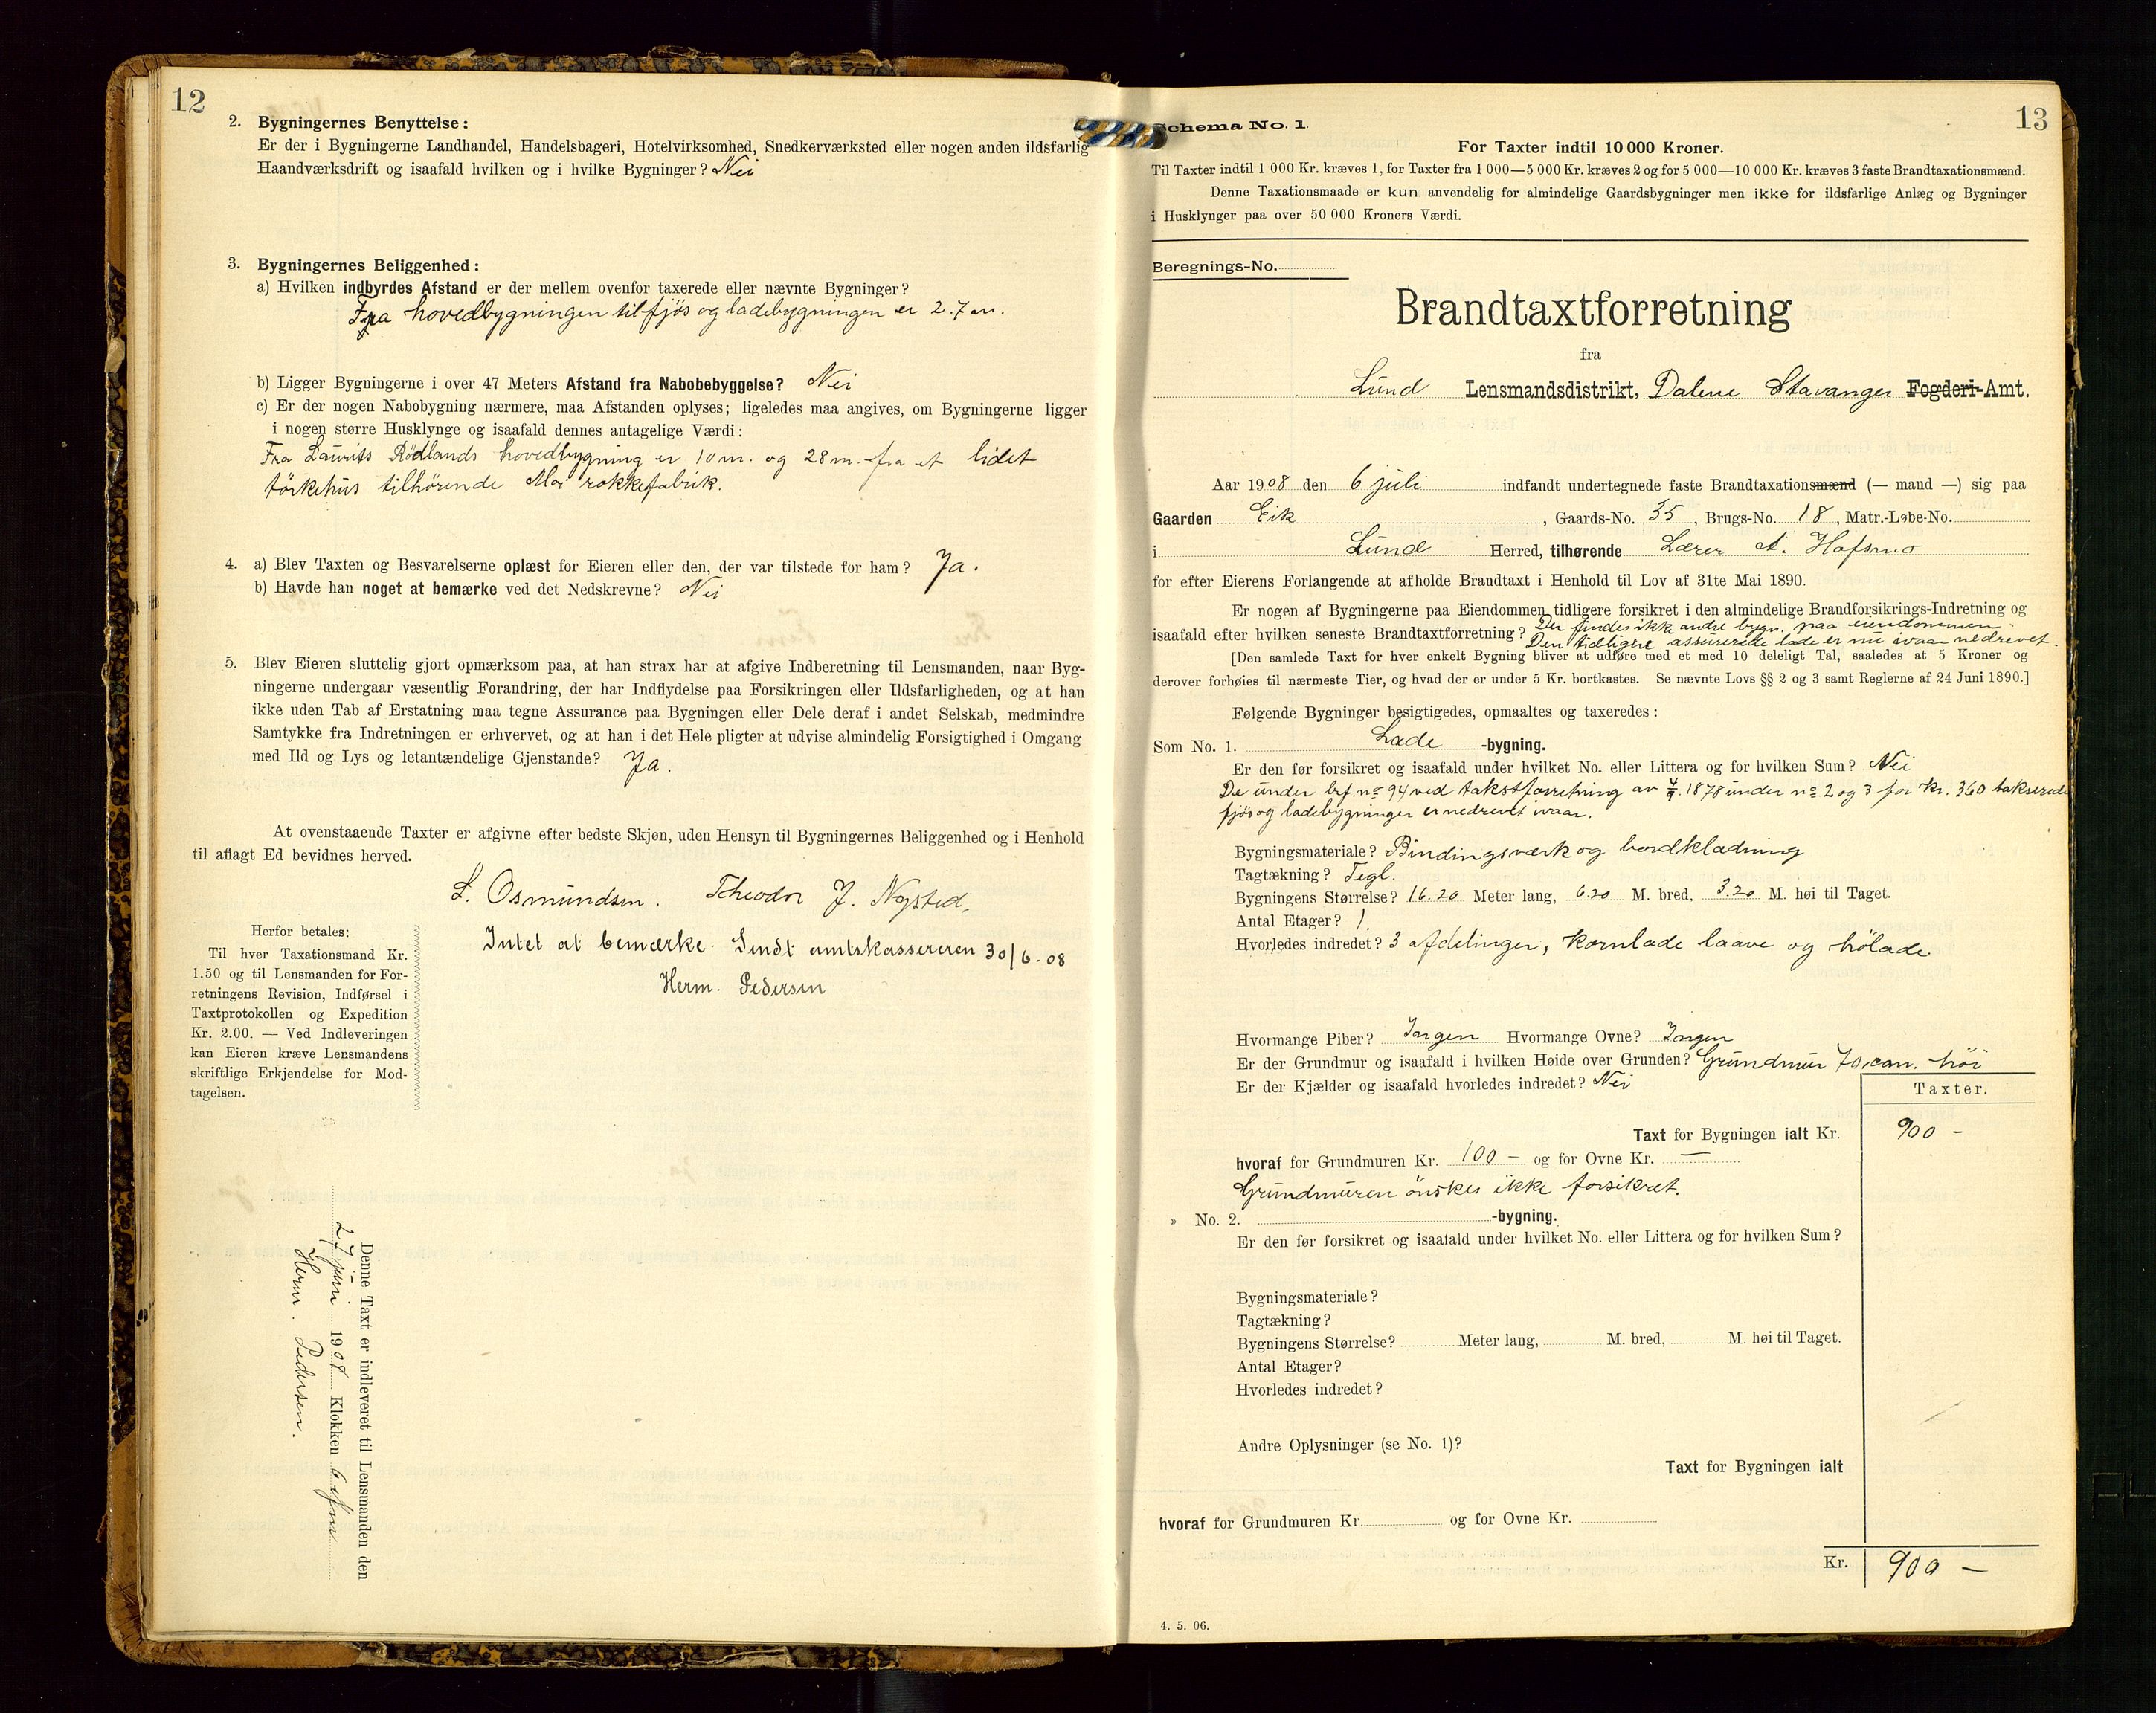 12
2. Bygningernes Benyttelse:
Er der i Bygningerne Landhandel, Handelsbageri, Hotelvirksomhed, Snedkerværksted eller nogen anden ildsfarlig
Haandværksdrift og isaafald hvilken og i hvilke Bygninger? Nei
3. Bygningernes Beliggenhed:
a) Hvilken indbyrdes Afstand er der mellem ovenfor taxerede eller nævnte Bygninger?
Fra hovedbygningen til fjös og ladebygningen er 2.7 m.
b) Ligger Bygningerne i over 47 Meters Afstand fra Nabobebyggelse? Nei
c) Er der nogen Nabobygning nærmere, maa Afstanden oplyses; ligeledes maa angives, om Bygningerne ligger
i nogen større Husklynge og isaafald dennes antagelige Værdi:
Fra Laurits Rödlands hovedbygning er 10 m. og 28 m. fra et lidet
törkehus tilhörende Moi rokkefabrik.
4. a) Blev Taxten og Besvarelserne oplæst for Eieren eller den, der var tilstede for ham? Ja.
b) Havde han noget at bemærke ved det Nedskrevne? Nei
5. Blev Eieren sluttelig gjort opmærksom paa, at han strax har at afgive Indberetning til Lensmanden, naar Byg-
ningerne undergaar væsentlig Forandring, der har Indflydelse paa Forsikringen eller Ildsfarligheden, og at han
ikke uden Tab af Erstatning maa tegne Assurance paa Bygningen eller Dele deraf i andet Selskab, medmindre
Samtykke fra Indretningen er erhvervet, og at han i det Hele pligter at udvise almindelig Forsigtighed i Omgang
med Ild og Lys og letantændelige Gjenstande? Ja.
At ovenstaaende Taxter er afgivne efter bedste Skjøn, uden Hensyn til Bygningernes Beliggenhed og i Henhold
til aflagt Ed bevidnes herved.
L. Osmundsen. Theodor J. Nysted.
Intet at bemærke. Sendt amtskassereren 30/6-08
Herm. Pedersen
Herfor betales:
Til hver Taxationsmand Kr.
1.50 og til Lensmanden for For-
retningens Revision, Indførsel i
Taxtprotokollen og Expedition
Kr. 2.00. — Ved Indleveringen
kan Eieren kræve Lensmandens
skriftlige Erkjendelse for Mod-
tagelsen.
Denne Taxt er indleveret til Lensmanden den
27 juni 1908 Klokken 6 efm
Herm. Pedersen.
13
Schema No. 1.
For Taxter indtil 10 000 Kroner.
Til Taxter indtil 1 000 Kr. kræves 1, for Taxter fra 1 000—5 000 Kr. kræves 2 og for 5 000—10 000 Kr. kræves 3 faste Brandtaxationsmænd.
Denne Taxationsmaade er kun anvendelig for almindelige Gaardsbygninger men ikke for ildsfarlige Anlæg og Bygninger
i Husklynger paa over 50 000 Kroners Værdi.
Beregnings-No.
Brandtaxtforretning
fra
Lund Lensmandsdistrikt, Dalene Stavanger Fogderi-Amt.
Aar 1908 den 6 juli indfandt undertegnede faste Brandtaxationsmænd (— mand —) sig paa
Gaarden Eik, Gaards-No. 35, Brugs-No. 18, Matr.-Løbe-No.
i Lund Herred, tilhørende Lærer A. Hafsmo
for efter Eierens Forlangende at afholde Brandtaxt i Henhold til Lov af 31te Mai 1890.
Er nogen af Bygningerne paa Eiendommen tidligere forsikret i den almindelige Brandforsikrings-Indretning og
isaafald efter hvilken seneste Brandtaxtforretning? Der findes ikke andre bygn. paa eiendommen.
Den tidligere assurerede lade er nu ivaar nedrevet.
[Den samlede Taxt for hver enkelt Bygning bliver at udføre med et med 10 deleligt Tal, saaledes at 5 Kroner og
derover forhøies til nærmeste Tier, og hvad der er under 5 Kr. bortkastes. Se nævnte Lovs §§ 2 og 3 samt Reglerne af 24 Juni 1890.]
Følgende Bygninger besigtigedes, opmaaltes og taxeredes:
Som No. 1. Lade -bygning.
Er den før forsikret og isaafald under hvilket No. eller Littera og for hvilken Sum? Nei
De under brf. no 94 ved takstforretning av 1878 under no 2 og 3 for kr. 360 takserede
fjös og ladebygninger er nedrevet ivaar.
Bygningsmateriale? Bindingsværk og bordklædning
Tagtækning? Tegl.
Bygningens Størrelse? 16.20 Meter lang, 6.20 M. bred, 3.20 M. høi til Taget.
Antal Etager? 1.
Hvorledes indredet? 3 afdelinger, kornlade laave og hölade.
Hvormange Piber? Ingen Hvormange Ovne? Ingen
Er der Grundmur og isaafald i hvilken Høide over Grunden? Grundmur 70 cm. höi
Er der Kjælder og isaafald hvorledes indredet? Nei
Taxter.
Taxt for Bygningen ialt Kr. 900 –
hvoraf for Grundmuren Kr. 100 – og for Ovne Kr. —
Grundmuren önskes ikke forsikret.
» No. 2. -bygning.
Er den før forsikret og isaafald under hvilket No. eller Littera og for hvilken Sum?
Bygningsmateriale?
Tagtækning?
Bygningens Størrelse? Meter lang, M. bred, M. høi til Taget.
Antal Etager?
Hvorledes indredet?
Andre Oplysninger (se No. 1)?
Taxt for Bygningen ialt
hvoraf for Grundmuren Kr. og for Ovne Kr.
Kr. 900 –
4. 5. 06.